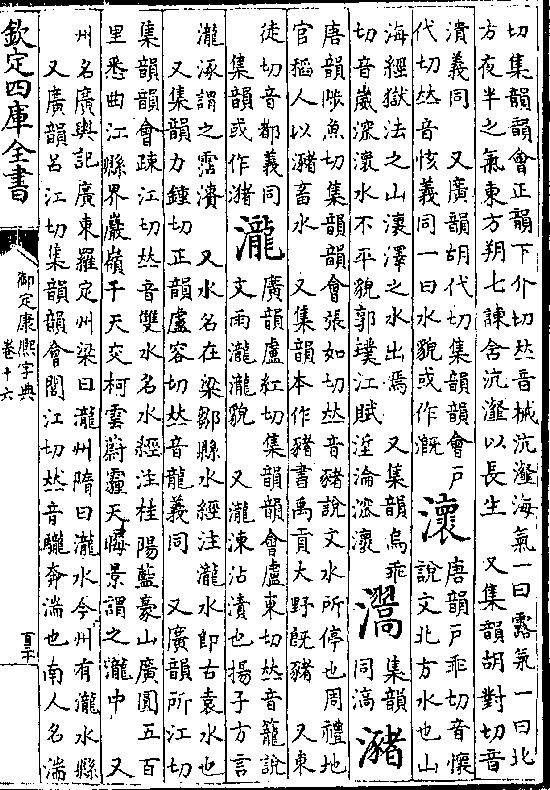 切集韻韻會正韻下介切𠀤音械沆瀣海氣一曰露氣一曰北
方夜半之氣東方朔七諫含沆瀣以長生 又集韻胡對切音
潰義同 又廣韻胡代切集韻韻會戶
代切𠀤音㤥義同一曰水貌或作溉
瀤
唐韻戶乖切音懷
說文北方水也山
海經獄法之山瀤澤之水出焉 又集韻烏乖
切音崴溾瀤水不平貌郭璞江賦淫淪溾瀤
集韻
同滈
瀦
唐韻陟魚切集韻韻會張如切𠀤音豬說文水所停也周禮地
官稻人以瀦畜水 又集韻本作豬書禹貢大野既豬 又東
徒切音都義同
集韻或作潴
瀧
廣韻盧紅切集韻韻會盧東切𠀤音籠說
文雨瀧瀧貌 又瀧涷沾漬也揚子方言
瀧涿謂之霑漬 又水名在梁鄒縣水經注瀧水即古袁水也
又集韻力鍾切正韻盧容切𠀤音龍義同 又廣韻所江切
集韻韻會疎江切𠀤音雙水名水經注桂陽藍豪山廣圓五百
里悉曲江縣界巖嶺干天交柯雲蔚霾天晦景謂之瀧中 又
州名廣輿記廣東羅定州梁曰瀧州隋曰瀧水今州有瀧水縣
又廣韻呂江切集韻韻會閭江切𠀤音瀧奔湍也南人名湍
欽定四庫全書
御定康熙字典
卷十六